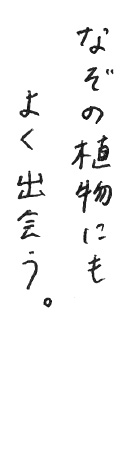 なぞの植物にも
よく出会う。